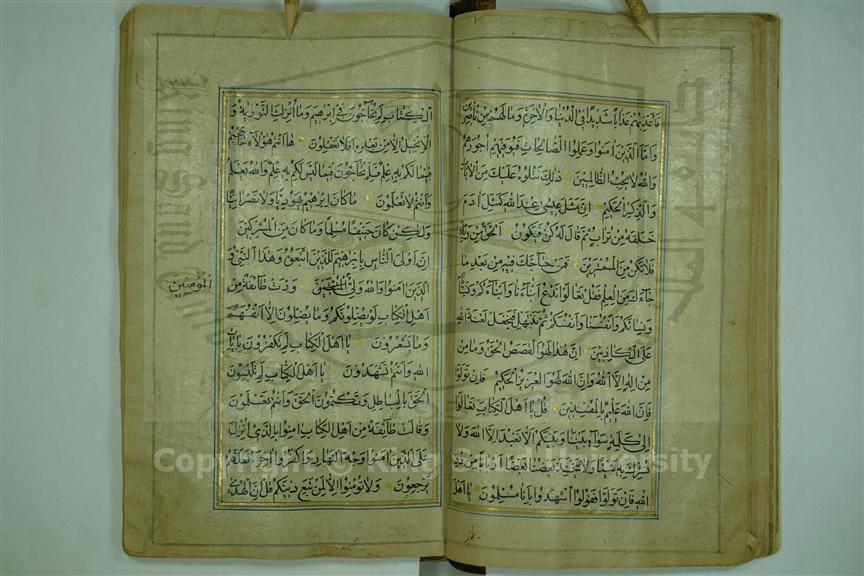 فاعذبهم عذابا شديدا في الدنيا والاخرة وما لهم من ناصرين
واما الذين امنوا وعملوا الصالحات فيوفيهم اجورهم
والله لا يحب الظالمين ذلك نتلوه عليك من الايات
والذكر الحكيم ان مثل عيسى عند الله كمثل ادم
خلقه من تراب ثم قال له كن فيكون الحق من ربك
فلا تكن من الممترين فمن حاجك فيه من بعد ما
جاءك من العلم فقل تعالوا ندع ابناءنا وابناءكم ونساءنا
ونساءكم وانفسنا وانفسكم ثم نبتهل فنجعل لعنة الله
على الكاذبين ان هذا لهو القصص الحق وما من
اله الا الله وان الله لهو العزيز الحكيم فان تولوا
فان الله عليم بالمفسدين قل يا اهل الكتاب تعالوا
الى كلمة سواء بيننا وبينكم الا نعبد الا الله ولا
نشرك به شيئا ولا يتخذ بعضنا بعضا اربابا من دون
الله فان تولوا فقولوا اشهدوا بانا مسلمون يا اهل
الكتاب لم تحاجون في ابرهيم وما انزلت التورية و
الانجيل الا من بعده افلا تعقلون ها انتم هؤلاء حاججتم
فيما لكم به علم فلم تحاجون فيما ليس لكم به علم والله يعلم
وانتم لا تعلمون ما كان ابرهيم يهوديا ولا نصرانيا
ولكن كان حنيفا مسلما وما كان من المشركين
ان اولى الناس بابرهيم للذين اتبعوه وهذا النبي و
الذين امنوا والله ولي المتقين ودت طائفة من
المؤمنين
اهل الكتاب لو يضلونكم وما يضلون الا انفسهم
وما يشعرون يا اهل الكتاب لم تكفرون بايات
الله وانتم تشهدون يا اهل الكتاب لم تلبسون
الحق بالباطل وتكتمون الحق وانتم تعلمون
وقالت طائفة من اهل الكتاب امنوا بالذي انزل
على الذين امنوا وجه النهار واكفروا اخره لعلهم
يرجعون ولا تؤمنوا الا لمن تبع دينكم قل ان الهدى
Copyright © King Saud University